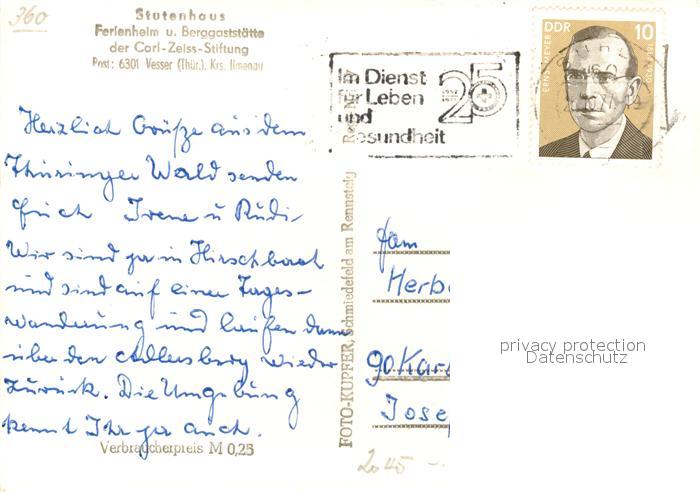 360
Stutenhaus
Ferienheim u. Berggaststätte
der Carl-Zeiss-Stiftung
Post: 6301 Vesser (Thür.), Krs. Ilmenau
Im Dienst
für Leben
und
Gesundheit
25
1952
DDR
10
ERNST MEYER
1887-1930
Herzlich Grüße aus dem
Thüringer Wald senden
Euch Irene u Rudi.
Wir sind ja in Hirschbach
und sind auf einer Tages-
wanderung und laufen dann
über den Adlersberg wieder
zurück. Die Umgebung
kennt Ihr ja auch.
Verbraucherpreis M 0,25
FOTO-KUPFER, Schmiedefeld am Rennsteig
Fam
Herb
90 Kar
Jose
20 45 -.
privacy protection
Datenschutz